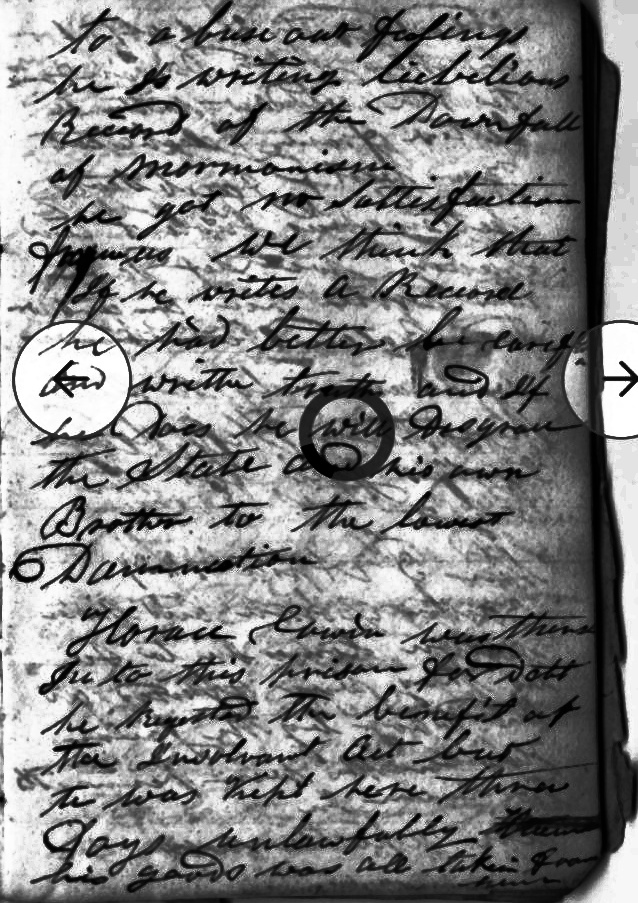 to abuse our feelings
he is writing
Record of the Downfall
of mormonism
he got no sattisfaction
We think that
If he writes a Record
he had better be
and writte truth and If
he Does he will Disgrace
the State and his own
Brother to the lowest
Damnation
Horace Ewin was thrown
In to this prison for Debt
he the benefit of
the Insolvant Act but
he was Kept here three
Days unlawfully
his goods was all taken from